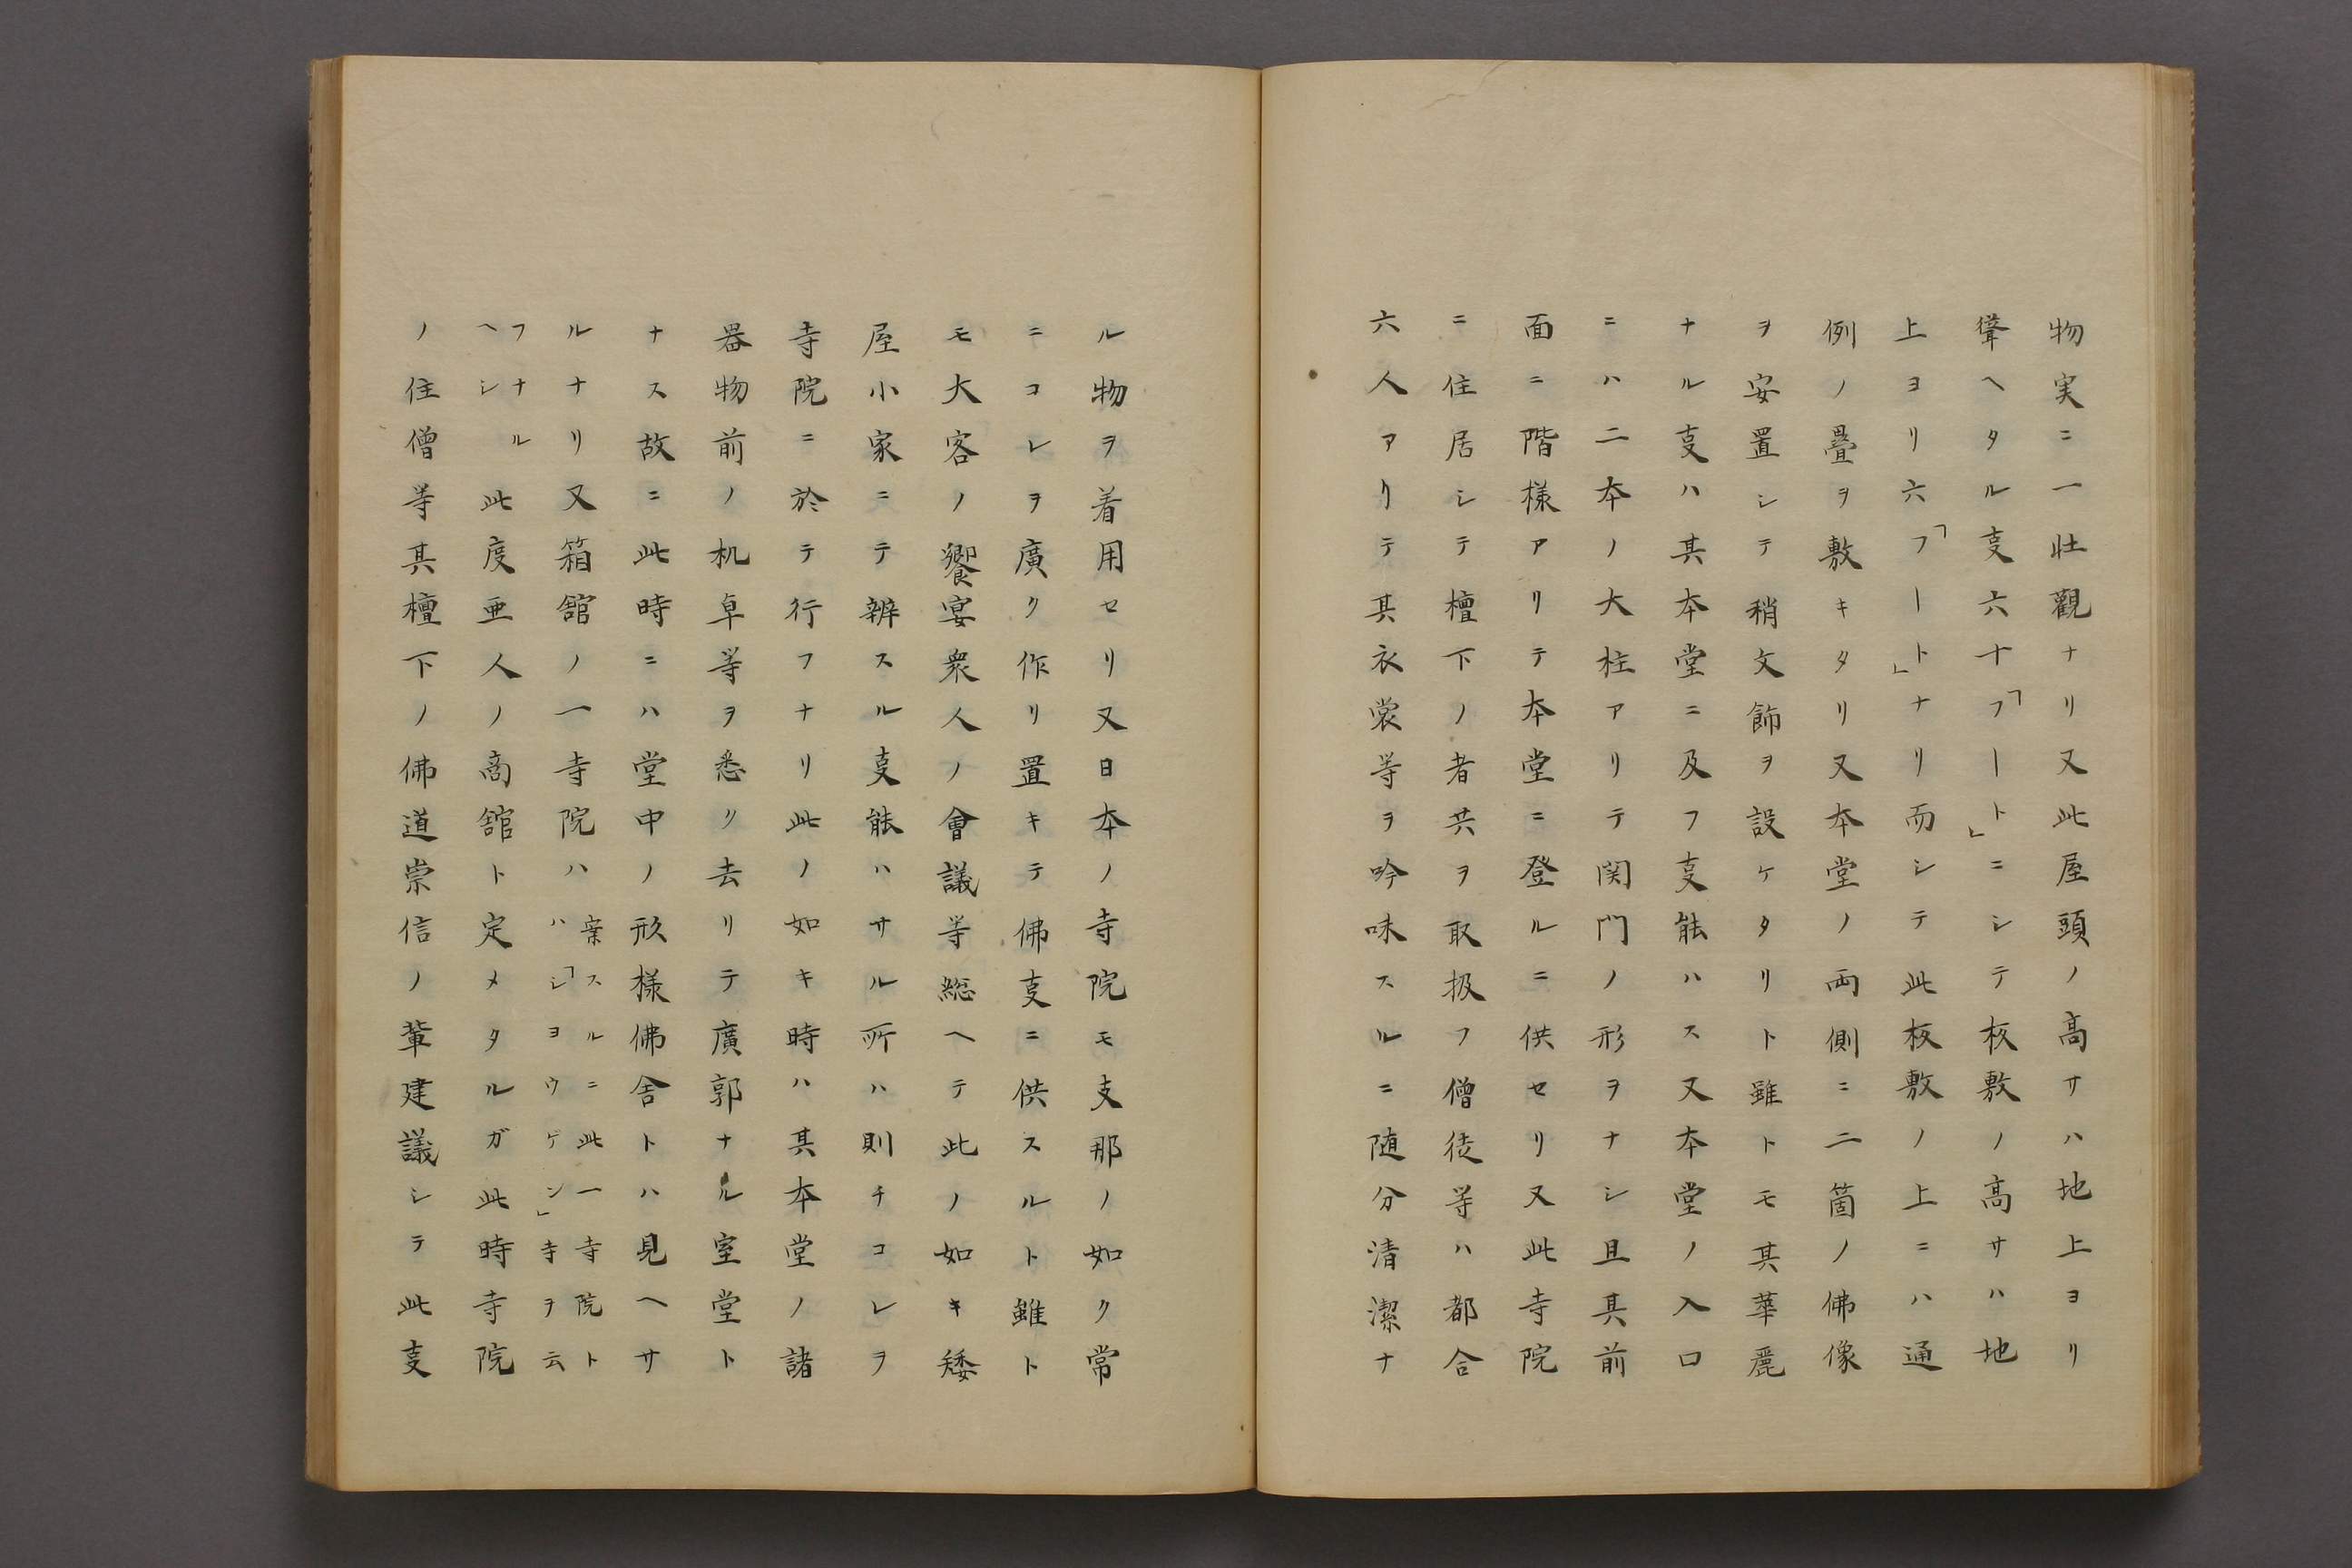 物実ニ一壮觀ナリ又此屋頭ノ高サハ地上ヨリ
聳ヘタル叓六十「フート」ニシテ板敷ノ高サハ地
上ヨリ六「フート」ナリ而シテ此板敷ノ上ニハ通
例ノ疊ヲ敷キタリ又本堂ノ両側ニ二箇ノ佛像
ヲ安置シテ稍文飾ヲ設ケタリト雖トモ其華麗
ナル叓ハ其本堂ニ及フ叓能ハス又本堂ノ入口
ニハ二本ノ大柱アリテ関門ノ形ヲナシ且其前
面ニ階様アリテ本堂ニ登ルニ供セリ又此寺院
ニ住居シテ檀下ノ者共ヲ取扱フ僧徒等ハ都合
六人アリテ其衣裳等ヲ吟味スルニ随分清潔ナ
ル物ヲ着用セリ又日本ノ寺院モ支那ノ如ク常
ニコレヲ廣ク作リ置キテ佛叓ニ供スルト雖ト
モ大客ノ饗宴衆人ノ會議等総ヘテ此ノ如キ矮
屋小家ニテ辨スル叓能ハサル所ハ則チコレヲ
寺院ニ於テ行フナリ此ノ如キ時ハ其本堂ノ諸
器物前ノ机卓等ヲ悉ク去リテ廣郭ナル室堂ト
ナス故ニ此時ニハ堂中ノ形様佛舎トハ見ヘサ
ルナリ又箱舘ノ一寺院ハ
案スルニ此一寺院ト
ハ「シヨウゲン」寺ヲ云
フナル
ヘシ
此度亜人ノ商舘ト定メタルガ此時寺院
ノ住僧等其檀下ノ佛道崇信ノ輩建議シテ此叓